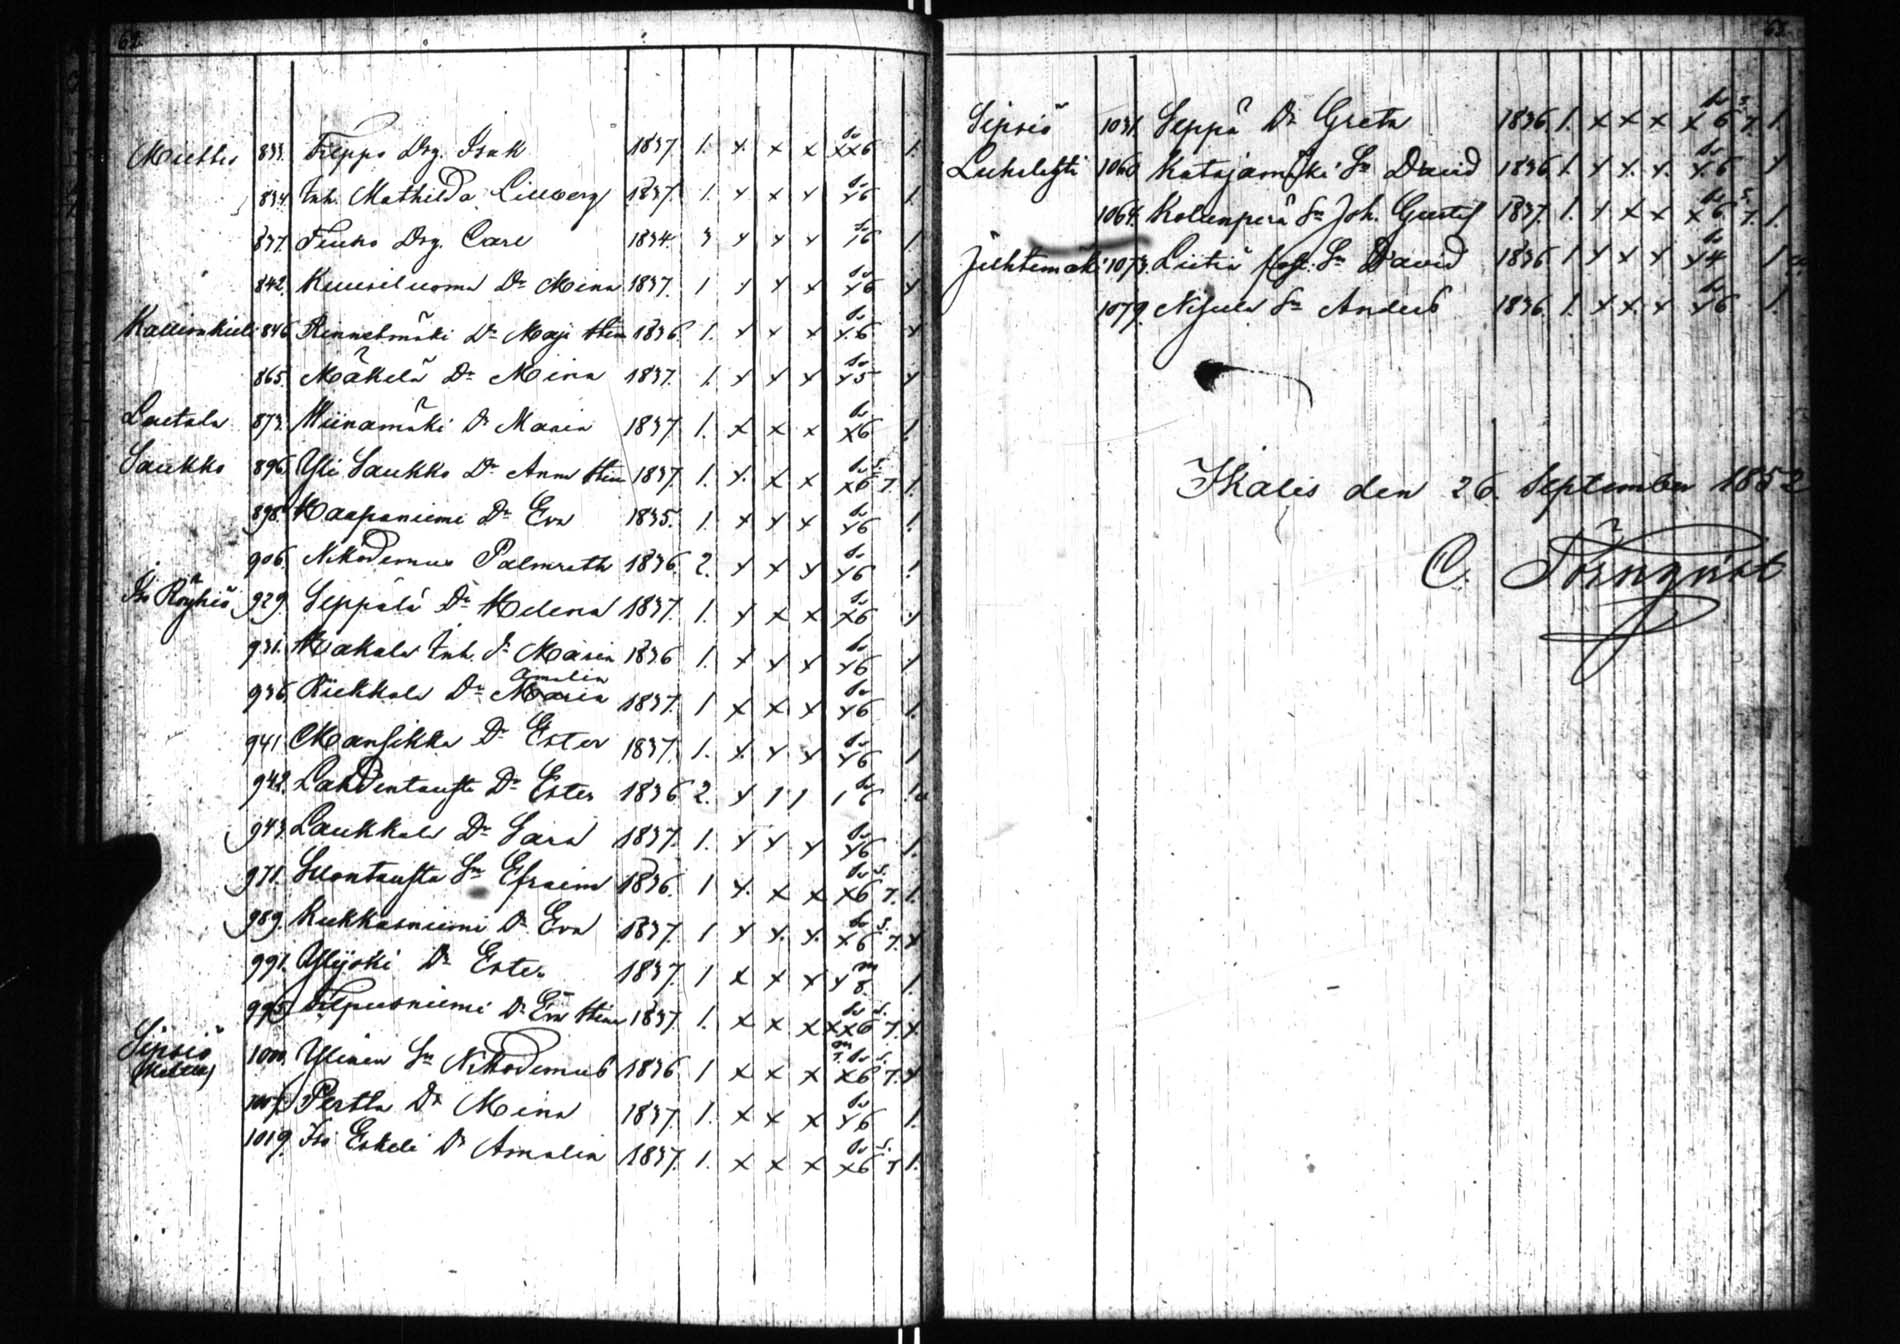 62.
Miettis 833. Filppo Drg. Isak 1837 1. x. x x xx6 1.
834. Inh. Mathilda Lillberg 1837. 1. x x x x6 1.
837. Finko Drg. Carl 1834. 3 x x x 16 1.
842. Kuusiluoma Dr Mina 1837. 1 x x x x6 x
846 Rinnetmäki Dr Maja Stin 1836. 1. x x x x.6 x
865. Mäkelä Dr Mina 1837. 1. x x x x5 x
Lautala 873. Hiinamäki Dr Maria 1837 1. x x x x6 1.
Saukko 896. Yli Saukko Dr Anna Stin 1837. 1. x. x x x6 7. 1.
898. Haapaniemi Dr Eva 1835. 1. x x x x6 1.
906. Nikodemus Palmroth 1836. 2. x x x x6 1.
Iso Röyhiö 929. Seppälä Dr Helena 1837. 1. x x x x6 x
931. Makala Inh. Dr Maria 1836 1. x x x x6 x
Amalia
936. Riikkala Dr Maria 1837. 1 x x x x6 1.
941. Mansikka Dr Ester 1837. 1. x. x x x6 1
942. Lahdentausta Dr Ester 1836 2. x 1 1 1 6
943. Laukkala Dr Sara 1837. 1. x x x x6 1.
971. Luontausta Sn Efraim 1836. 1 x. x x x6 7. 1.
989. Kukkasniemi Dr Eva 1837. 1 x x. x. x6 7. x
991. Ylijoki Dr Ester 1837. 1 x x x x 8. 1.
995. Filpusniemi Dr Eva Stin 1837. 1. x x x xx6 7. x.
Sipsiö 1000. Ylinen Sn Nikodemus 1836. 1 x x x x6 7. x
Pertta Dr Mina 1837. 1. x x x x6 1.
1019. Iso Eskeli Dr Amalia 1837. 1. x x x x6 7 1.
63.
Sipsiö 1031. Seppä Dr Greta 1836. 1. x x x x6 7. 1.
Luhalahti 1060 Katajamäki Sn David 1836. 1. x x. x. x.6 x
1064. Kolunperä Sn Joh. Gustaf 1837. 1. x x x x6 7. 1.
Juhtimäki 1073. Liitiä Sn David 1836 1 x x x x4 1
1079. Nisula Sn Anders 1836. 1. x x. x x6 1.
Ikalis den 26. September 1852
C. Törnqvist